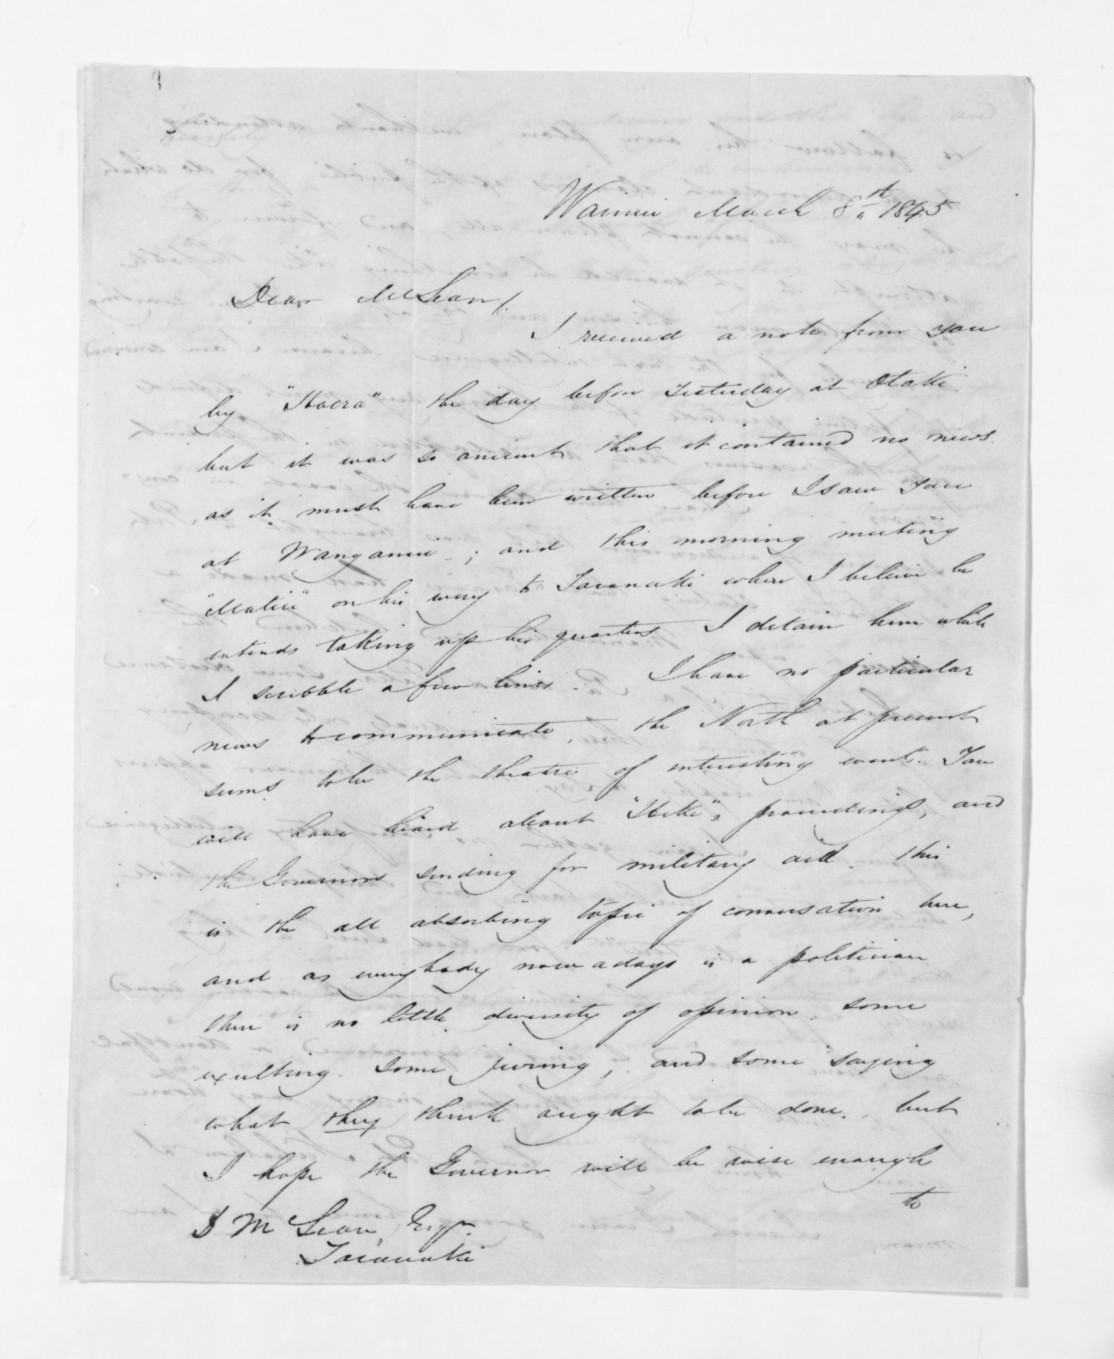 Wainui March 8th 1845
Dear McLean/.
I received a note from you
by "Hoera" the day before yesterday at Otaki
but it was so ancient that it contained no news
as it must have been written before I saw you
at Wanganui ; and this morning meeting
"Matiu" on his way to Taranaki where I believe he
intends taking up his quarters I detain him while
I scribble a few lines. I have no particular
news to communicate, the North at present
seems to be the theatre of interesting event. You
will have heard about "Heke"s proceedings, and
the Governors sending for military aid. this
is the all absorbing topic of conversation here,
and as everybody now a days is a politician
there is no little diversity of opinion. some
exulting. some jeering, and some saying
what they think ought to be done. but
I hope the Governor will be wise enough
to
D McLean, Esqr.
Taranaki